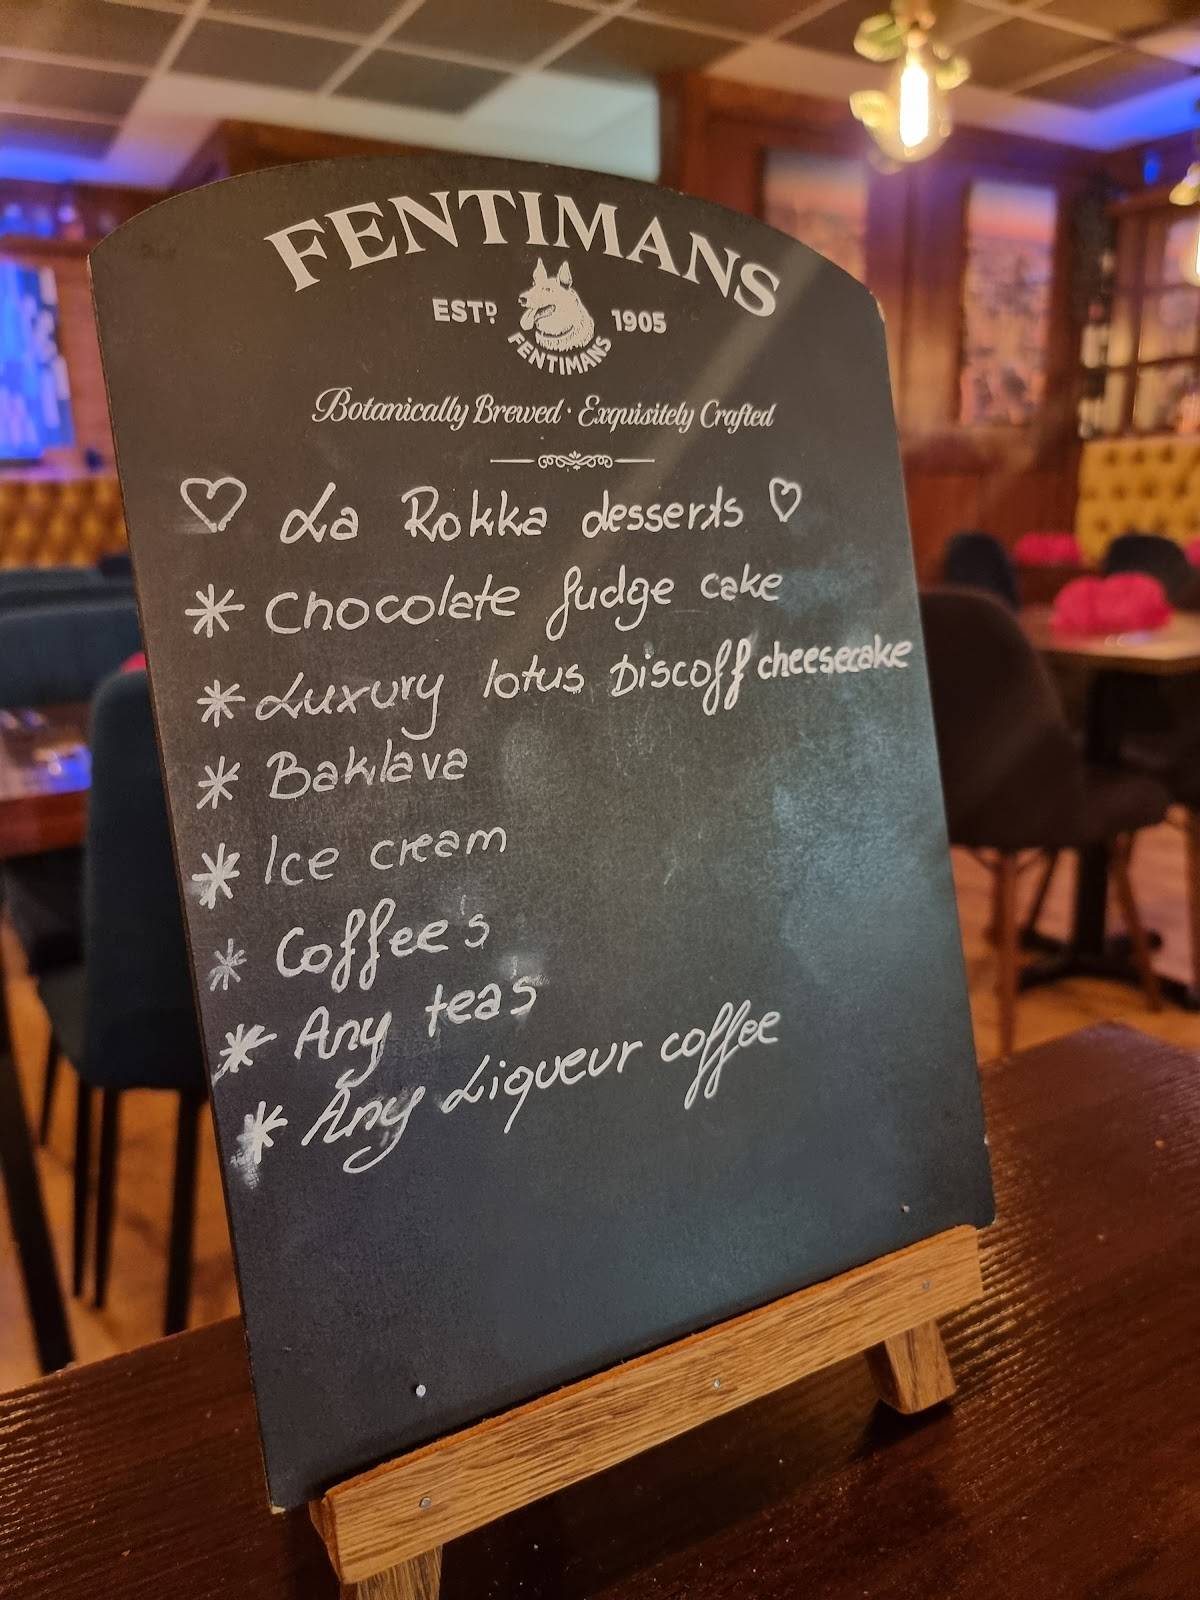 FENTIMANS
ESTD. 1905
FENTIMANS
Botanically Brewed · Exquisitely Crafted
♡ La Rokka desserts ♡
* Chocolate fudge cake
* Luxury lotus Discoff cheesecake
* Baklava
* Ice cream
* Coffee's
* Any teas
* Any Liqueur coffee